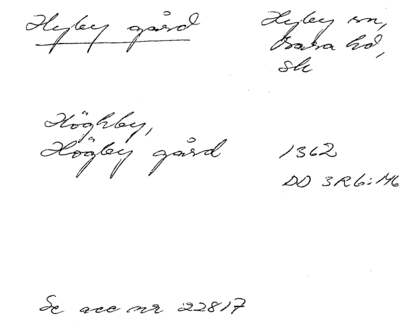 Hyby gård
Hyby sn,
Bara hd,
Sk
Höghby,
Högby gård 1362
DD 3R6:146
Se acc nr 22817